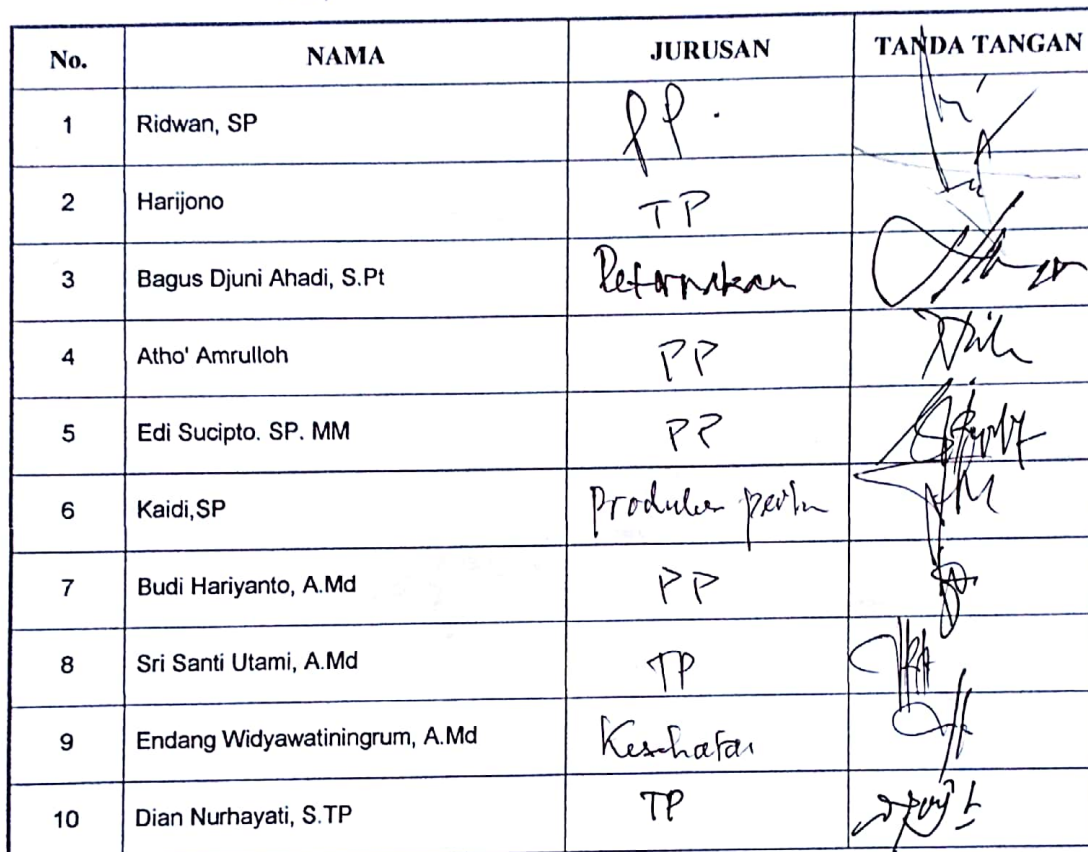 No. NAMA JURUSAN TANDA TANGAN
1 Ridwan, SP PP.
2 Harijono TP
3 Bagus Djuni Ahadi, S.Pt Peternakan
4 Atho' Amrulloh PP
5 Edi Sucipto. SP. MM PP
6 Kaidi,SP
7 Budi Hariyanto, A.Md PP
8 Sri Santi Utami, A.Md TP
9 Endang Widyawatiningrum, A.Md Kesehatan
10 Dian Nurhayati, S.TP TP